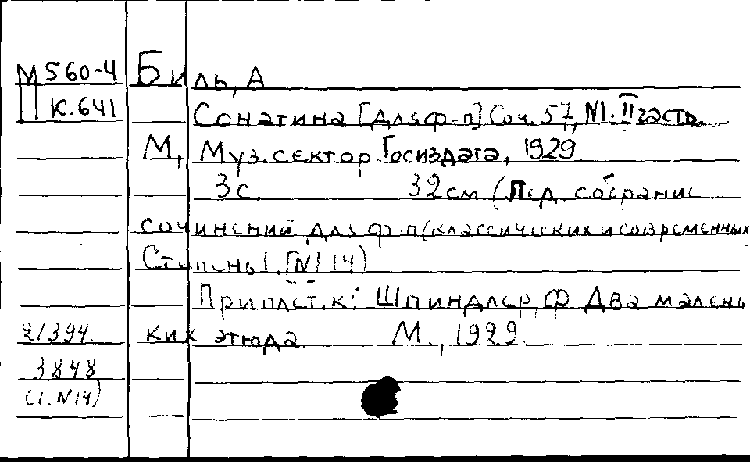 М560-4
П к.641
Биль, А
Сонатина [Для ф-п] Соч. 57, N1. II часть.
М, Муз.сектор.Госиздата, 1929
3с 32см (Пед. собрание
сочинений для ф-п(классических и современных
Ступень I. [N114)
Приплет.к: Шпиндлер, Ф Два малень
ких этюда М., 1929
21394.
3848
(1.N14)